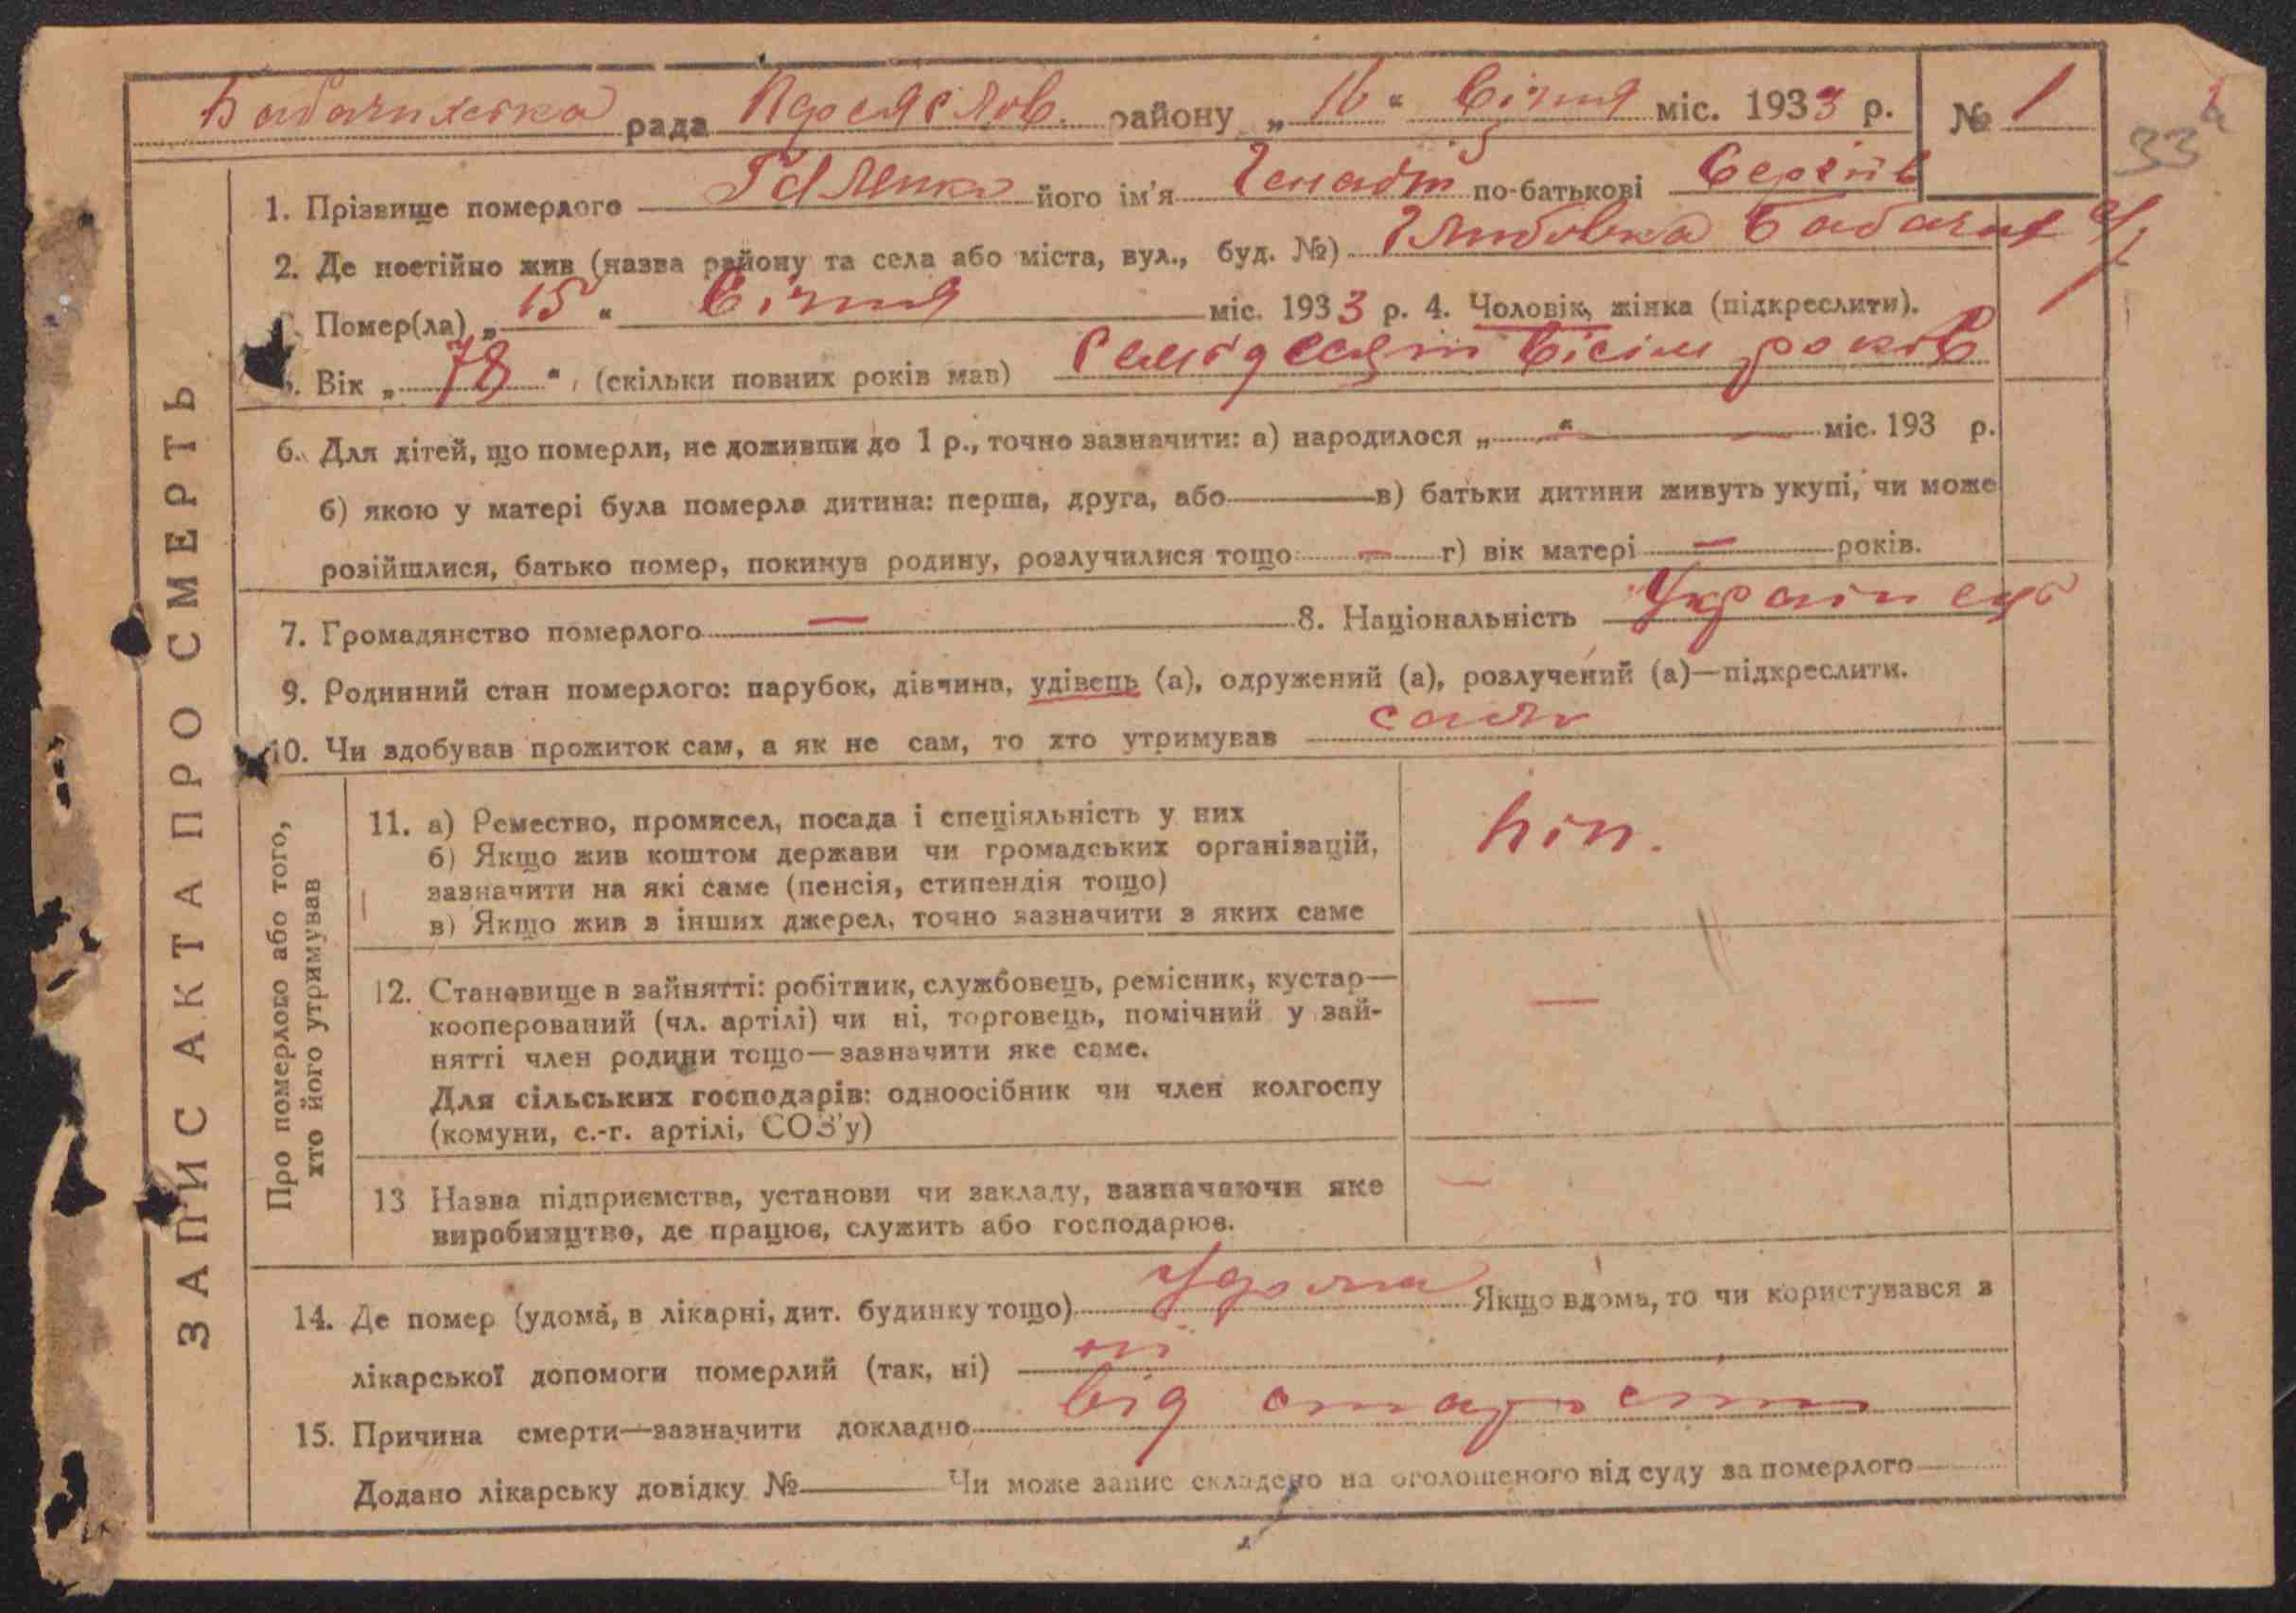 Бабачихська рада Переяслов. району „16“ Січня міс. 1933 р. № 1
33
1. Прізвище померлого Галенко його ім'я Генадій по-батькові Сергіїв
2. Де постійно жив (назва району та села або міста, вул., буд. №)
Помер(ла) „15“ Січня міс. 1933 р. 4. Чоловік, жінка (підкреслити).
Вік „78“, (скільки повних років мав) Семідесят вісім років
6. Для дітей, що померли, не доживши до 1 р., точно зазначити: а) народилося „—“ — міс. 193 р.
б) якою у матері була померла дитина: перша, друга, або — в) батьки дитини живуть укупі, чи може
розійшлися, батько помер, покинув родину, розлучилися тощо — г) вік матері — років.
7. Громадянство померлого — 8. Національність Українець
9. Родинний стан померлого: парубок, дівчина, удівець (а), одружений (а), розлучений (а)—підкреслити.
10. Чи здобував прожиток сам, а як не сам, то хто утримував сам
ЗАПИС АКТА ПРО СМЕРТЬ
Про померлого або того,
хто його утримував
11. а) Ремество, промисел, посада і спеціяльність у них
б) Якщо жив коштом держави чи громадських організацій,
зазначити на які саме (пенсія, стипендія тощо)
в) Якщо жив з інших джерел, точно зазначити з яких саме
піп.
12. Становище в зайнятті: робітник, службовець, ремісник, кустар—
кооперований (чл. артілі) чи ні, торговець, помічний у зай-
нятті член родини тощо—зазначити яке саме.
Для сільських господарів: одноосібник чи член колгоспу
(комуни, с.-г. артілі, СОЗ'у)
—
13 Назва підприємства, установи чи закладу, зазначаючи яке
виробництво, де працює, служить або господарює.
—
14. Де помер (удома, в лікарні, дит. будинку тощо) Удома Якщо вдома, то чи користувався з
лікарської допомоги померлий (так, ні) ні
15. Причина смерти—зазначити докладно від старости
Додано лікарську довідку № Чи може запис складено на оголошеного від суду за померлого